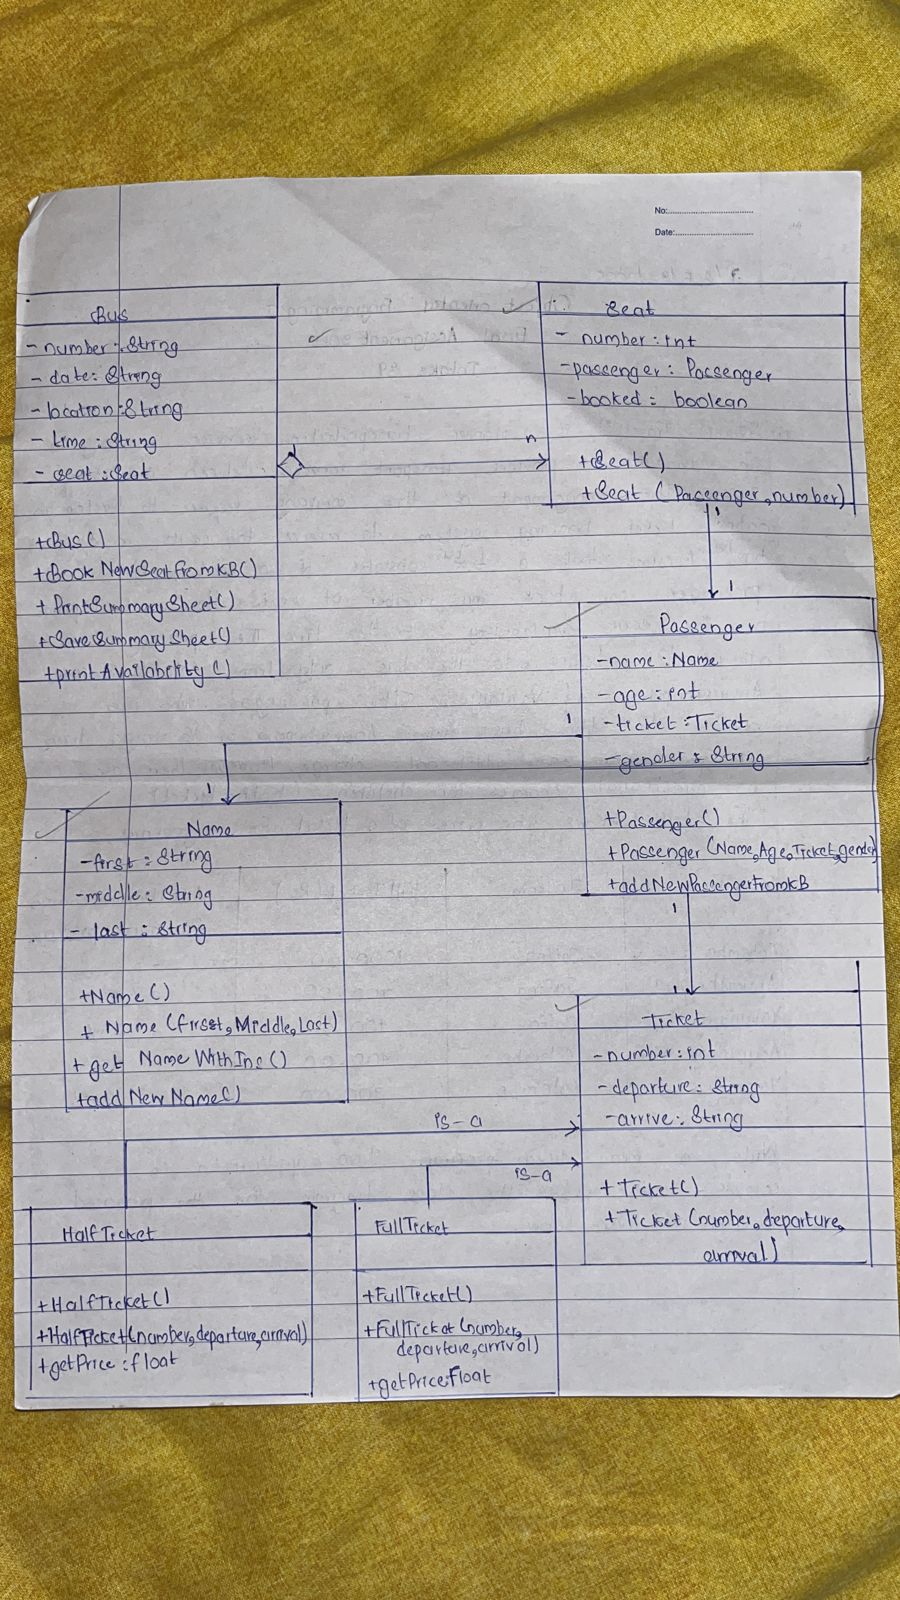 No:
Date:
Bus
- number : String
- date : String
- location : String
- time : String
- seat : Seat
+Bus ( )
+Book NewSeatFromKB( )
+ PrintSummarySheet( )
+SaveSummarySheet( )
+print Availability ( )
1
n
Seat
- number : int
-passenger : Passenger
-booked : boolean
+Seat ( )
+Seat (Passenger, number)
1
1
Passenger
-name : Name
-age : int
-ticket : Ticket
-gender : String
+Passenger( )
+Passenger (Name, Age, Ticket, gender)
+addNewPassengerFromKB
1
1
Name
-first : String
-middle : String
- last : String
+Name ( )
+ Name (first, Middle, Last)
+ get Name WithIns ( )
+add New Name( )
1
1
Ticket
-number : int
-departure : String
-arrive : String
+ Ticket( )
+ Ticket (number, departure,
arrival)
is-a
is-a
HalfTicket
+HalfTicket( )
+HalfTicket(number, departure, arrival)
+getPrice : float
FullTicket
+FullTicket( )
+FullTicket (number,
departure, arrival)
+getPrice:Float